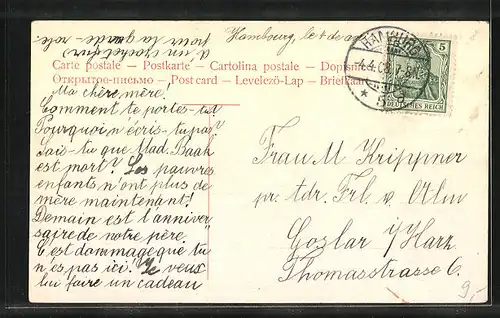 à un crochet pour
pour la garde-robe
Hambourg, le 4 de avr
Carte postale – Postkarte – Cartolina postale – Dopisnice
Открытое-письмо – Post card – Levelező-Lap – Briefkaart
HAMBURG
4.4.08.
5
DEUTSCHES REICH
Ma chère mère!
Comment te portes-tu?
Pourquoi n'écris-tu pas?
Sais-tu que Mad. Baak
est mort? Les pauvres
enfants n'ont plus de
mère maintenant!
Demain est l'anniver
saire de notre père.
C'est dommage que tu
n'es pas ici! Je veux
lui faire un cadeau
Frau M Krippner
pr. adr. Frl. v. Olm
Goslar i/Harz.
Thomasstrasse 6.
9,-